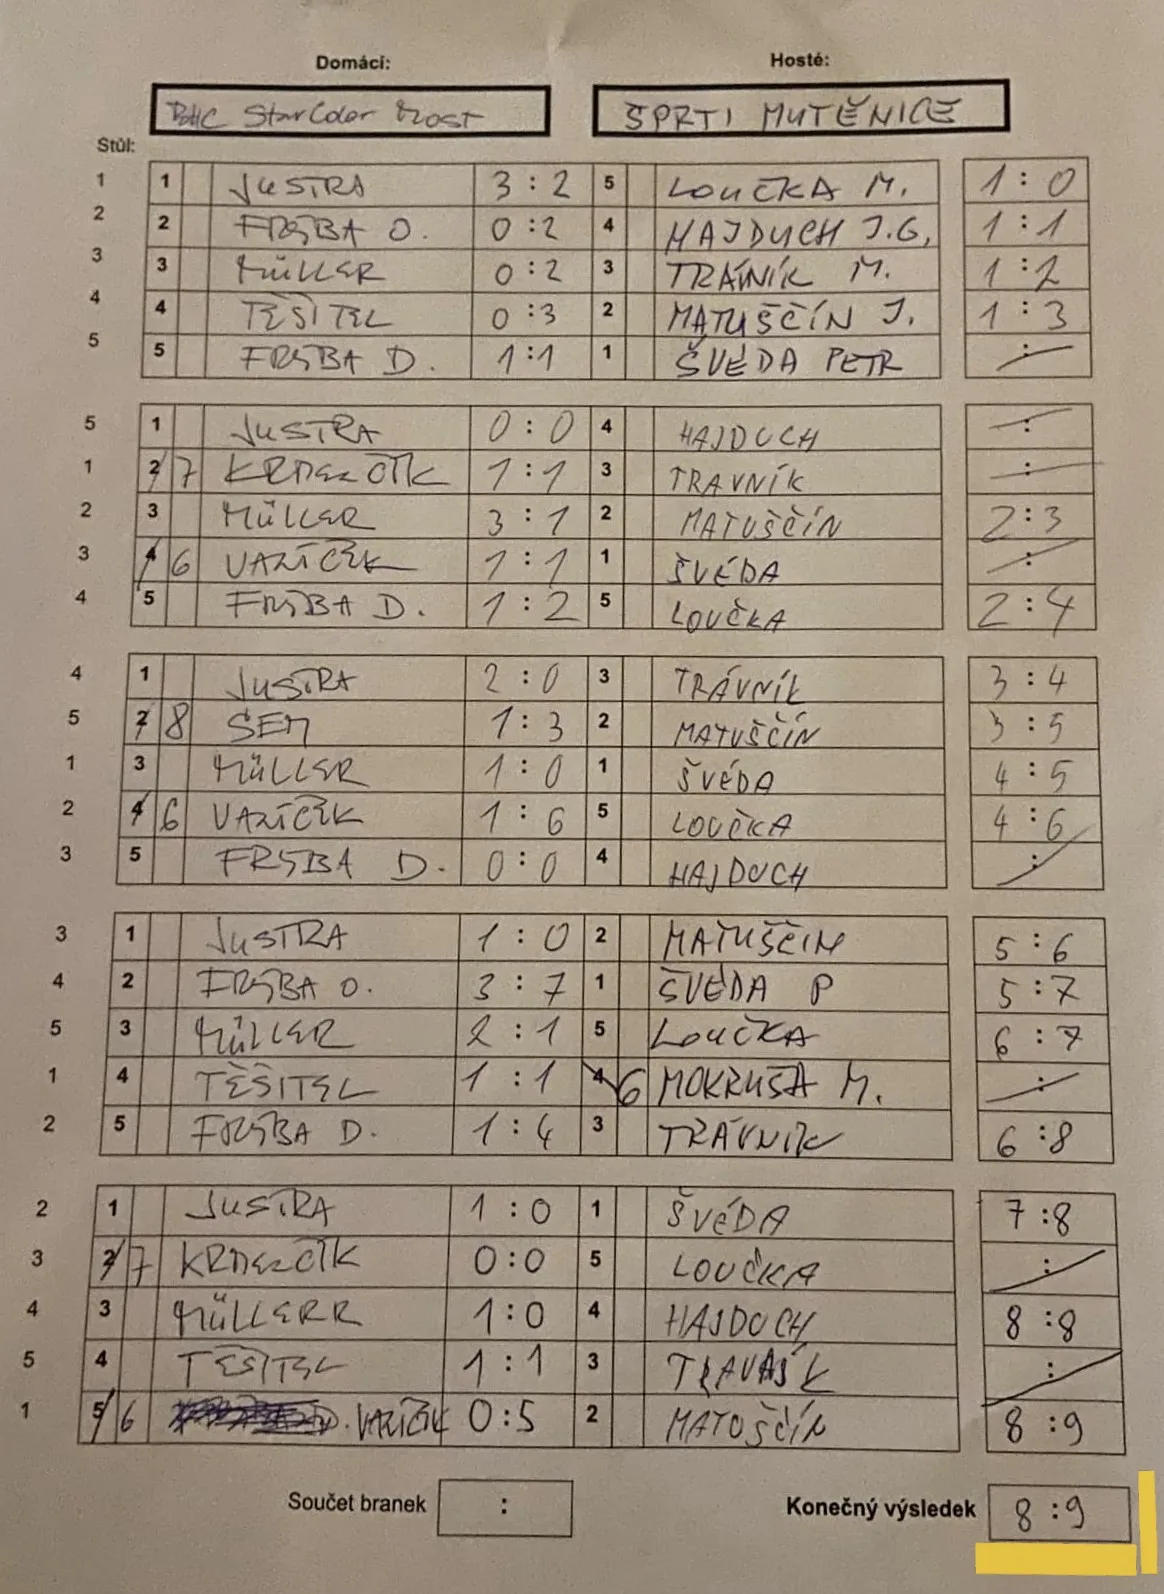 Domácí: Hosté:
BHC StarColor Most ŠPRTI MUTĚNICE
Stůl:
1 1 JUSTRA 3 : 2 5 LOUČKA M. 1 : 0
2 2 FRYBA O. 0 : 2 4 HAJDUCH J.G. 1 : 1
3 3 MÜLLER 0 : 2 3 TRÁVNÍK M. 1 : 2
4 4 TĚŠITEL 0 : 3 2 MATUŠČÍN J. 1 : 3
5 5 FRYBA D. 1 : 1 1 ŠVÉDA PETR :
5 1 JUSTRA 0 : 0 4 HAJDUCH :
1 2 7 1 : 1 3 TRAVNÍK :
2 3 MÜLLER 3 : 1 2 MATUŠČÍN 2 : 3
3 4 6 VAŘÍČEK 1 : 1 1 ŠVÉDA :
4 5 FRYBA D. 1 : 2 5 LOUČKA 2 : 4
4 1 JUSTRA 2 : 0 3 TRÁVNÍK 3 : 4
5 2 8 SEM 1 : 3 2 MATUŠČÍN 3 : 5
1 3 MÜLLER 1 : 0 1 ŠVÉDA 4 : 5
2 4 6 VAŘÍČEK 1 : 6 5 LOUČKA 4 : 6
3 5 FRYBA D. 0 : 0 4 HAJDUCH :
3 1 JUSTRA 1 : 0 2 MATUŠČÍN 5 : 6
4 2 FRYBA O. 3 : 7 1 ŠVÉDA P 5 : 7
5 3 MÜLLER 2 : 1 5 LOUČKA 6 : 7
1 4 TĚŠITEL 1 : 1 4 6 MOKRUŠA M. :
2 5 FRYBA D. 1 : 4 3 TRÁVNÍK 6 : 8
2 1 JUSTRA 1 : 0 1 ŠVÉDA 7 : 8
3 2 7 0 : 0 5 LOUČKA :
4 3 MÜLLERR 1 : 0 4 HAJDUCH 8 : 8
5 4 TĚŠITEL 1 : 1 3 :
1 5 6 VAŘÍČEK 0 : 5 2 MATUŠČÍN 8 : 9
Součet branek : Konečný výsledek 8 : 9